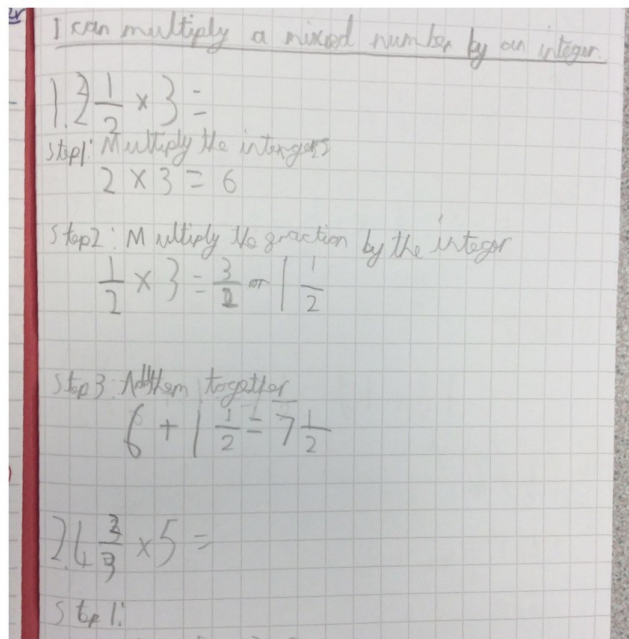 I can multiply a mixed number by an integer.
1. 2 1/2 × 3 =
Step1: Multiply the intergers
2 × 3 = 6
Step2: Multiply the fraction by the integer
1/2 × 3 = 3/2 or 1 1/2
Step3: Add them together
6 + 1 1/2 = 7 1/2
2. 4 2/3 × 5 =
Step1: